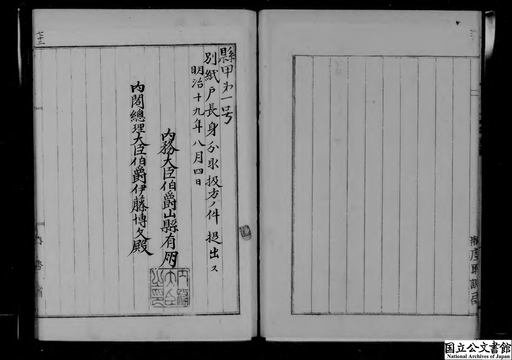 縣甲第一号
別紙戸長身分取扱方ノ件提出ス
明治十九年八月四日
内務大臣伯爵山縣有朋
内閣總理大臣伯爵伊藤博文殿
国立公文書館
National Archives of Japan